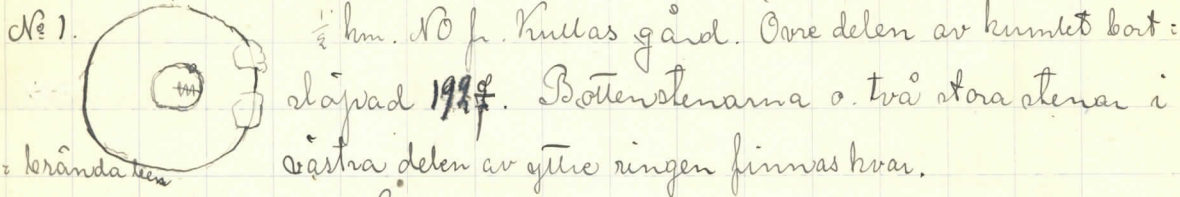 № 1.
½ km. NO fr. Kullas gård. Övre delen av kumlet bort=
släpad. Bottenstenarna o. två stora stenar i
västra delen av yttre ringen finnas kvar.
= brända ben